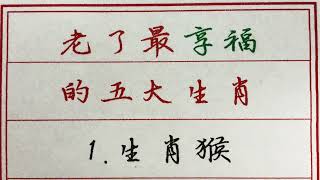 老了最享福
的五大生肖
1.生肖猴